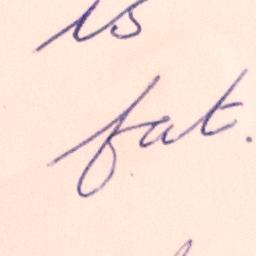 is
fat.